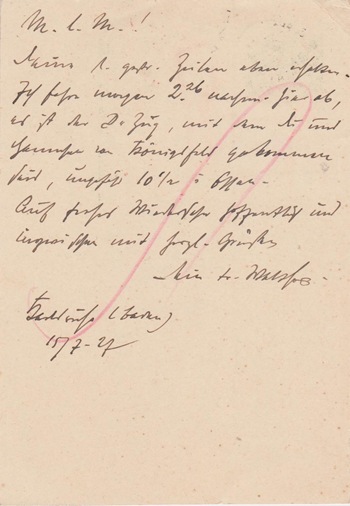 M. l. M.!
Deine l. gestr. Zeilen eben erhalten.
Ich fahre morgen 2.26 nachm. hier ab,
es ist der D-Zug, mit dem Du und
Hannchen von Königsfeld gekommen
seid, ungefähr 10 1/2 in Essen.
Auf frohes Wiedersehen hoffentlich und
inzwischen mit herzl. Grüßen
Dein tr.
Karlsruhe (Baden)
15/7-27